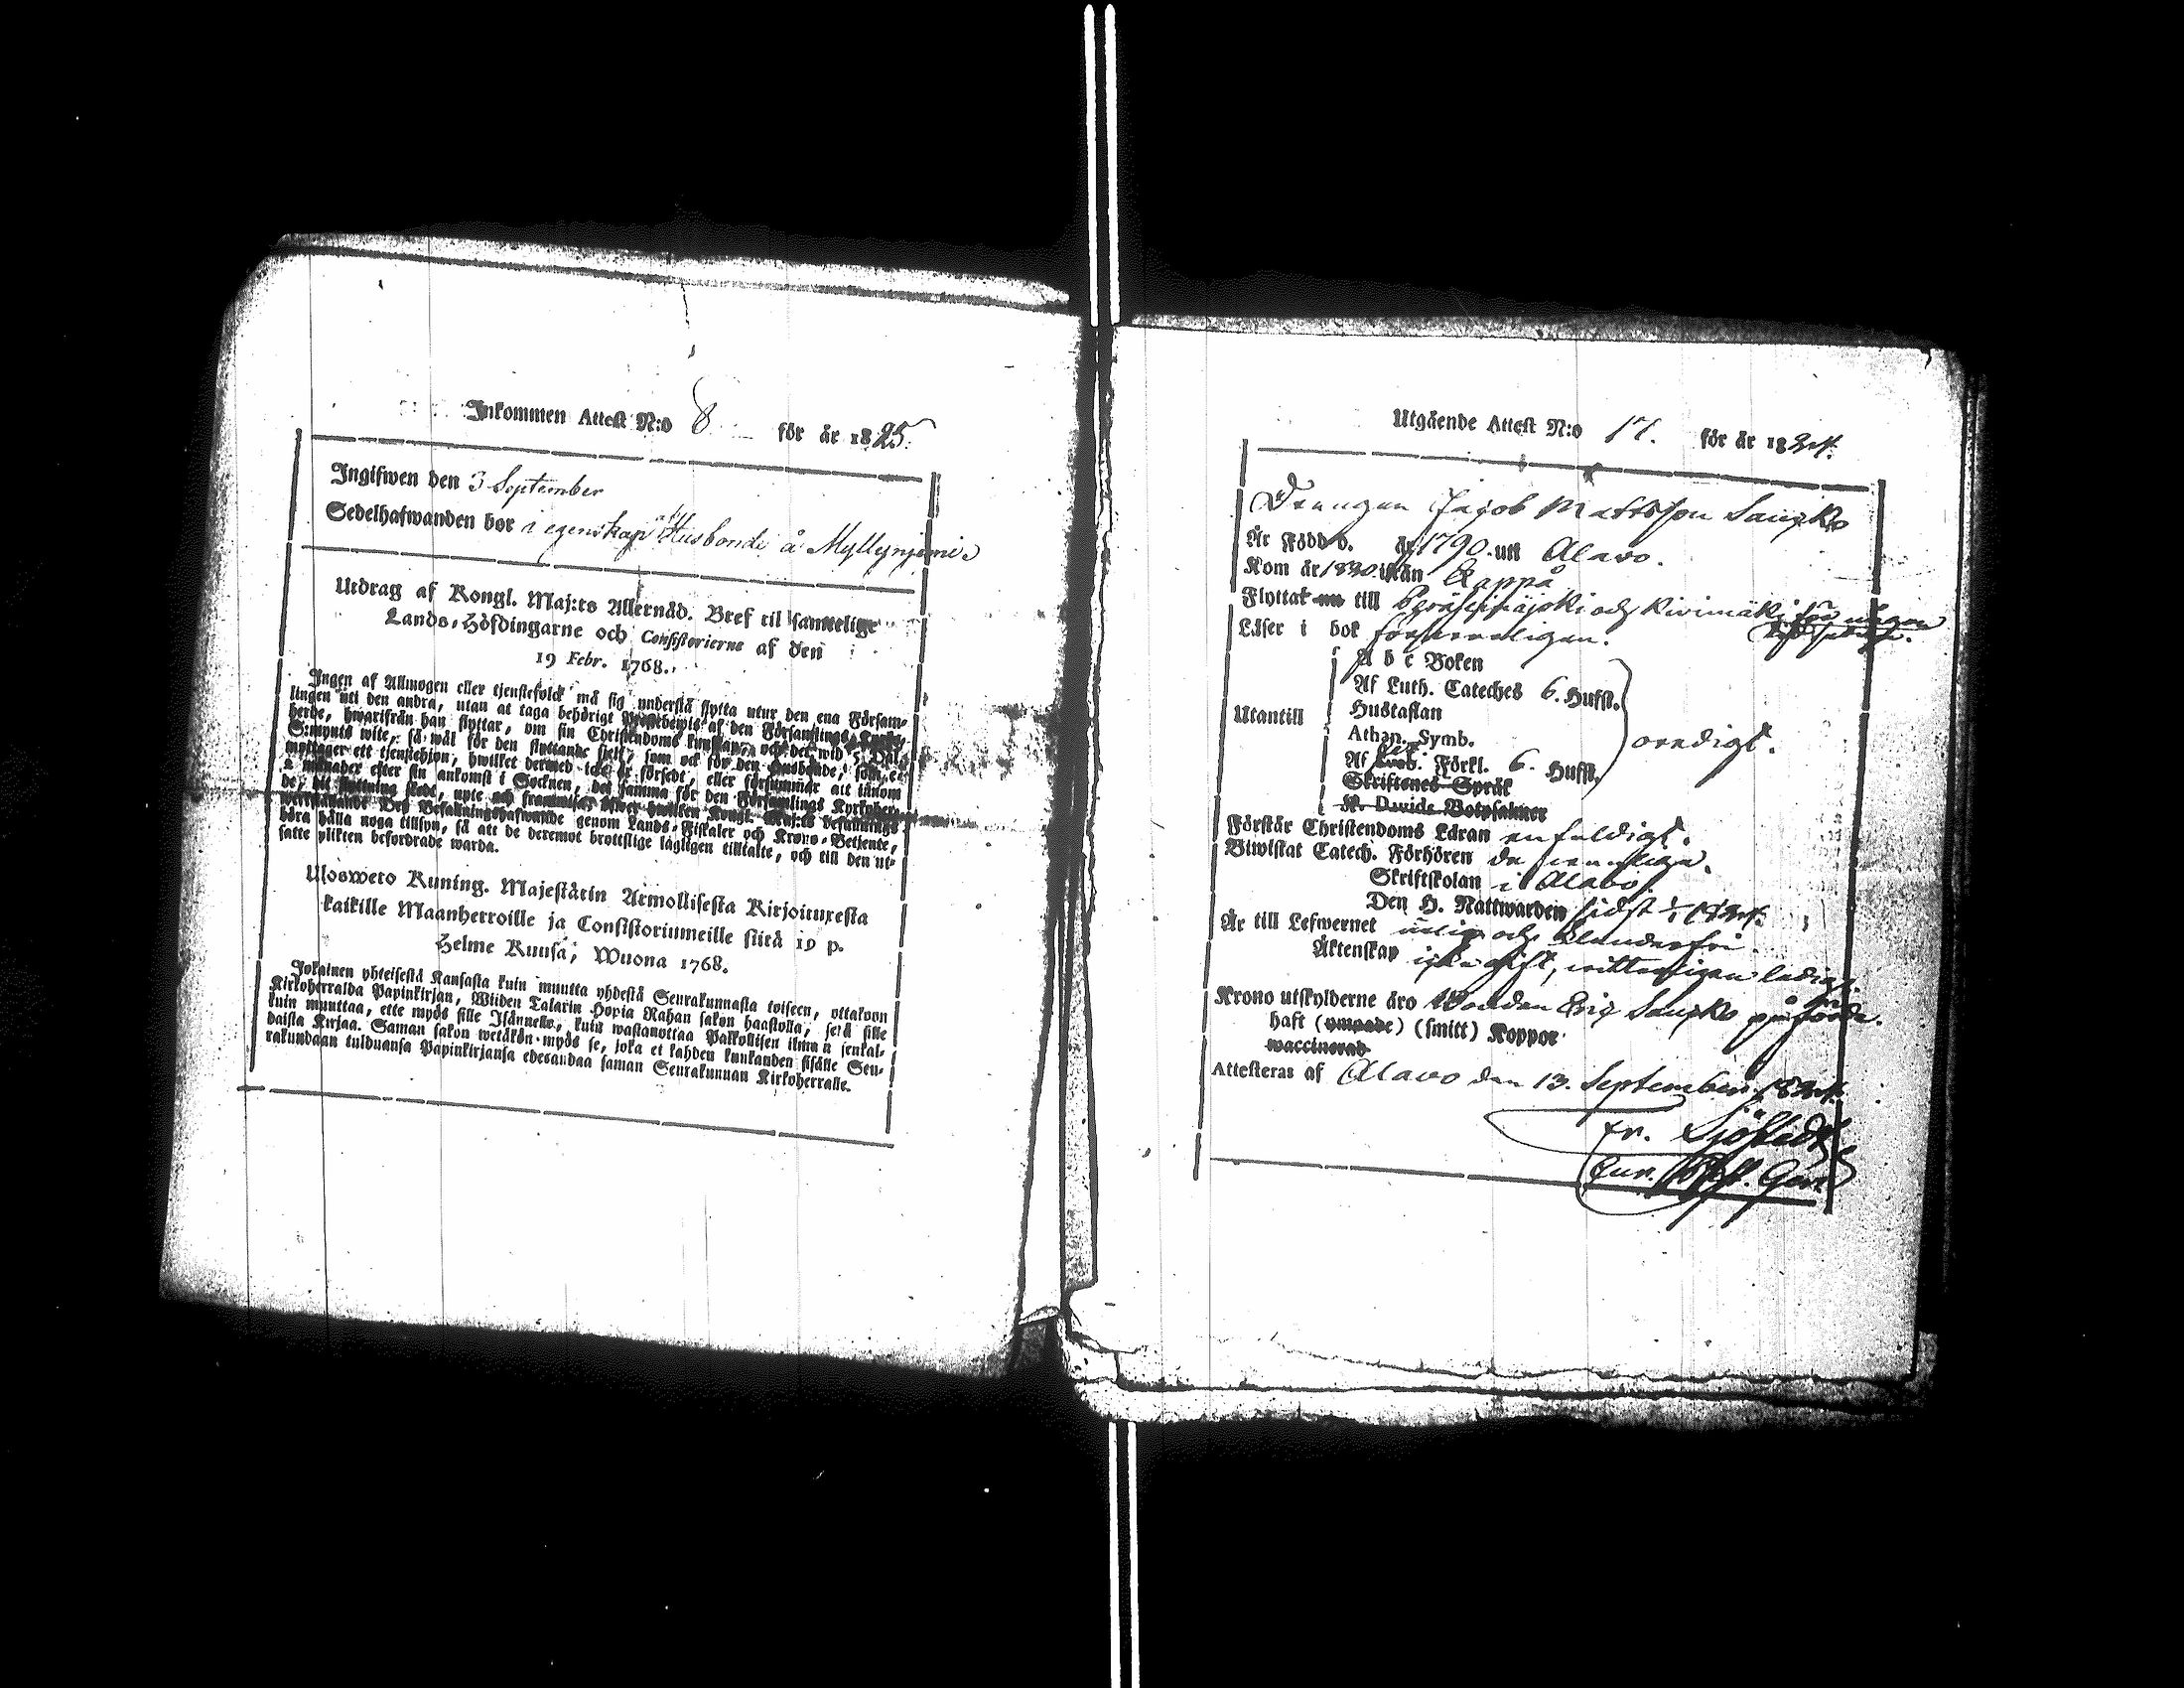 Inkommen Attest N:o 8 för år 1825.
Ingifwen den 3 September
Sedelhafwanden bor i egenskap af Husbonde å Myllyniemi
Utdrag af Kongl. Maj:ts Allernåd. Bref til samtelige
Lands-Höfdingarne och Consistorierne af den
19 Febr. 1768.
Ingen af Allmogen eller tjenstefolck må sig understå flytta utur den ena Försam-
lingen uti den andra, utan at taga behörigt Prestbewis af den Församlings Kyrko-
herde, hwarifrån han flyttar, om sin Christendoms kunskap, och det wid 5 Dal.
S:mynts wite, så wäl för den flyttande sjelf, som ock för den Husbonde, som
mottager ett tjenstehjon, hwilket dermed icke är försedt, eller försummar att innom
2 månader efter sin ankomst i Socknen, det samma för den Församlings Kyrkoher-
de, dit flyttning skedt, upte och framwisa; öfwer hwilken Kongl. Maj:ts befallnings
Bref Befallningshafwande genom Lands-Fiskaler och Krono-Betjente,
böra hålla noga tillsyn, så att de deremot brottslige lagligen tilltalte, och till den ut-
satte plikten befordrade warda.
Ulosweto Kuning. Majestätin Armollisesta Kirjoituxesta
kaikille Maanherroille ja Consistoriumeille siitä 19 p.
Helme Kuusa, Wuona 1768.
Jokainen yhteisestä Kansasta kuin muutta yhdestä Seurakunnasta toiseen, ottakoon
Kirkoherralda Papinkirjan, Wiiden Talarin Hopia Rahan sakon haastolla, sekä sille
kuin muuttaa, ette myös sille Isännelle, kuin wastanottaa Palkollisen ilman senkal-
daista Kirjaa. Saman sakon wetäkön myös se, joka ei kahden kuukauden sisälle Seu-
rakundaan tulduansa Papinkirjansa edesandaa saman Seurakunnan Kirkoherralle.
Utgående Attest N:o 17. för år 1824.
Drängen Jacob Mattsson Saupko
Är Född d. år 1790. uti Alavo.
Kom år 1820. ifrån Lappå
Flyttat till Peräseinäjoki och Kivimäki för någon
Läser i bok försvarligen.
Utantill
A b c Boken
Af Luth. Cateches 6. Hufst.
Hustaflan
Athan. Symb.
Af Förkl. 6. Hufst.
ordigt.
Skriftenes Språk
K. Davids Botpsalmer
Förstår Christendoms Läran enfaldigt.
Biwistat Catech. Förhören
Skriftskolan i Alavo.
Den H. Nattwarden sidst 1824.
Är till Lefwernet ärlig och
Äktenskap icke gift, witterligen ledig.
Krono utskylderne äro Bonden Eric Saupko
haft (ympade) (smitt) Koppor
waccinerad
Attesteras af Alavo den 13. September 1824.
Fr. Sjöstedt